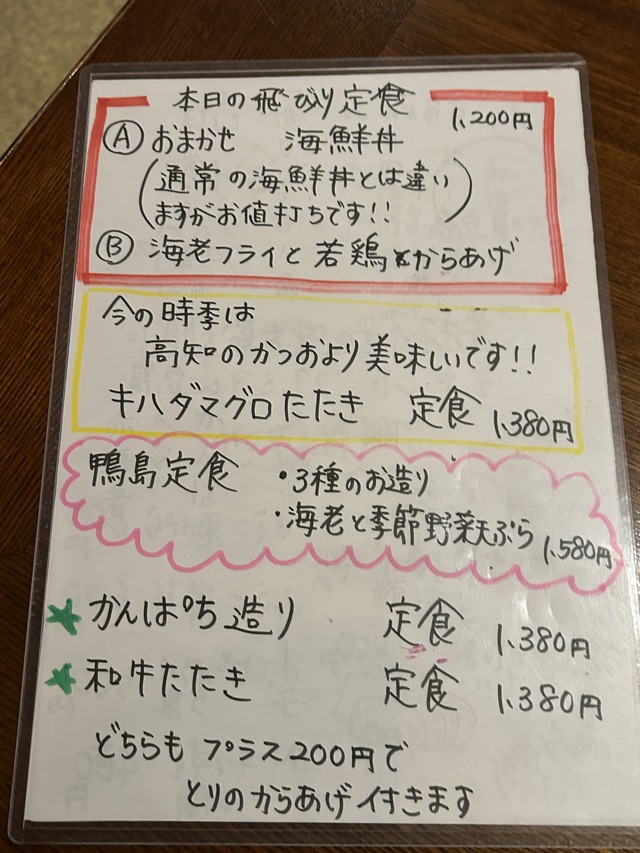 本日の飛びきり定食
1,200円
Ⓐ おまかせ 海鮮丼
(通常の海鮮丼とは違い
ますがお値打ちです!!)
Ⓑ 海老フライと若鶏からあげ
今の時季は
高知のかつおより美味しいです!!
キハダマグロたたき 定食 1,380円
鴨島定食 ・3種のお造り
・海老と季節野菜天ぷら 1,580円
★かんぱち造り 定食 1,380円
★和牛たたき 定食 1,380円
どちらもプラス200円で
とりのからあげ付きます